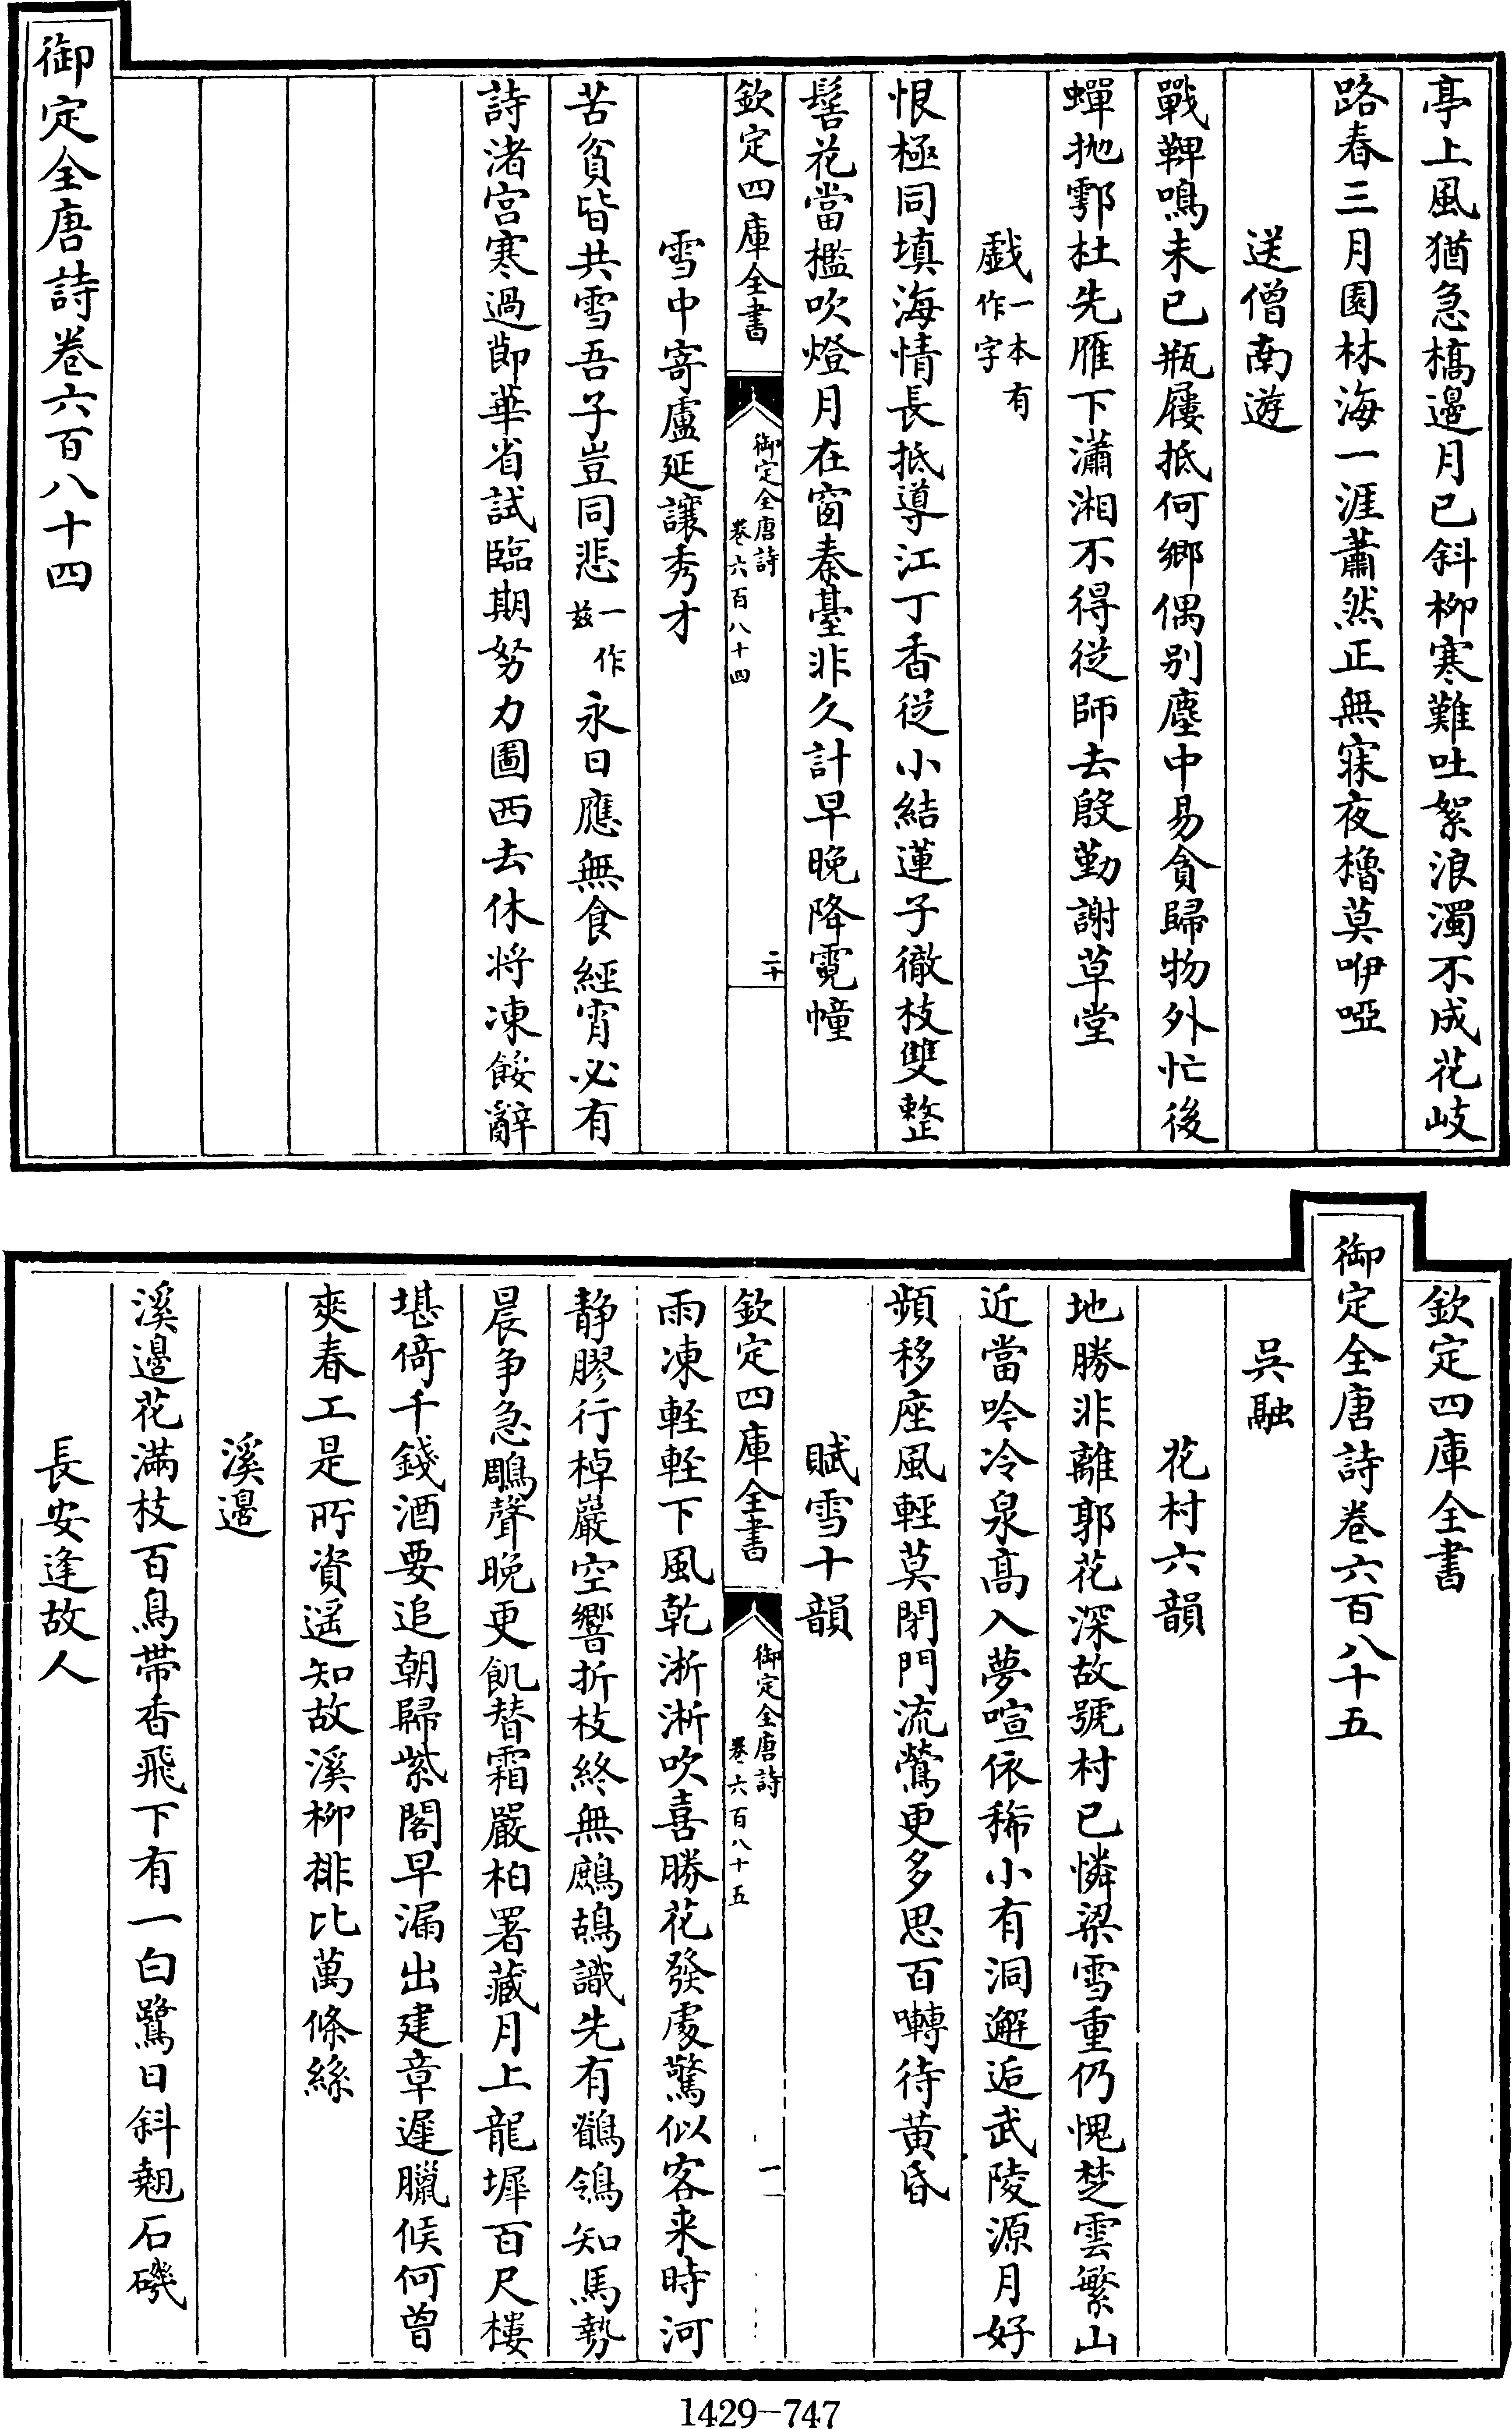 亭上風猶急橋邊月已斜柳寒難吐絮浪濁不成花岐
路春三月園林海一涯蕭然正無寐夜櫓莫咿啞
送僧南遊
戰鞞鳴未已瓶屨抵何鄉偶别塵中易貪歸物外忙後
蟬抛鄠杜先雁下瀟湘不得從師去殷勤謝草堂
戯一本有作字
恨極同填海情長抵導江丁香從小結蓮子徹枝雙整
髻花當檻吹燈月在窗秦臺非久計早晚降霓幢
欽定四庫全書
御定全唐詩
卷六百八十四
二十
雪中寄盧延讓秀才
苦貧皆共雪吾子豈同悲一作兹永日應無食經宵必有
詩渚宮寒過節華省試臨期努力圖西去休将凍餒辭
御定全唐詩卷六百八十四
欽定四庫全書
御定全唐詩卷六百八十五
吳融
花村六韻
地勝非離郭花深故號村已憐梁雪重仍愧楚雲繁山
近當吟冷泉高入夢喧依稀小有洞邂逅武陵源月好
頻移座風輕莫閉門流鶯更多思百囀待黄昏
賦雪十韻
欽定四庫全書
御定全唐詩
卷六百八十五
一
雨凍輕輕下風乾淅淅吹喜勝花發處驚似客来時河
静膠行棹巖空響折枝終無鷓鴣識先有鶺鴒知馬勢
晨争急鵰聲晚更飢替霜嚴柏署藏月上龍墀百尺樓
堪倚千錢酒要追朝歸紫閣早漏出建章遲臘候何曾
爽春工是所資遥知故溪柳排比萬條絲
溪邊
溪邊花滿枝百鳥帶香飛下有一白鷺日斜翹石磯
長安逢故人
1429-747